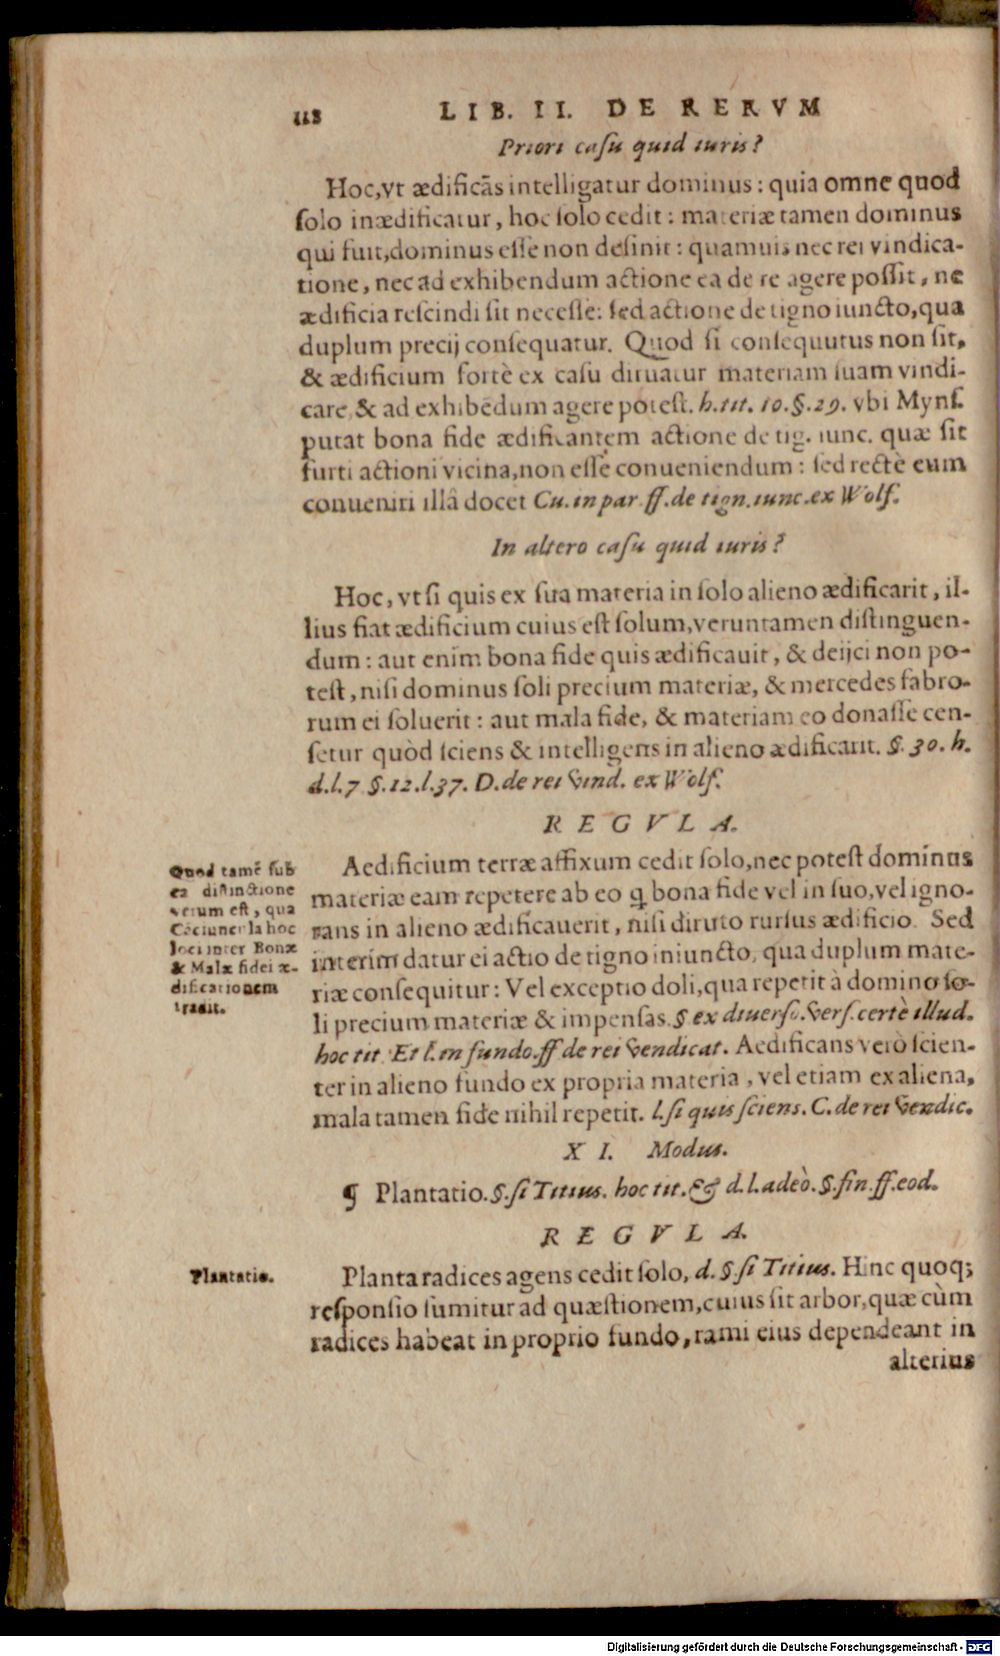 118 LIB. II. DE RERVM
Priori caſu quid iuris?
Hoc, vt ædificãs intelligatur dominus: quia omne quod
ſolo inædificatur, hoc ſolo cedit: materiæ tamen dominus
qui fuit, dominus eſſe non deſinit: quamuis nec rei vindica-
tione, nec ad exhibendum actione ea de re agere poſſit, ne
ædificia reſcindi ſit neceſſe: ſed actione de tigno iuncto, qua
duplum precij conſequatur. Quod ſi conſequutus non ſit,
& ædificium fortè ex caſu diruatur materiam ſuam vindi-
care & ad exhibẽdum agere poteſt. h. tit. 10. §. 29. vbi Mynſ.
putat bona fide ædificantem actione de tig. iunc. quæ ſit
furti actioni vicina, non eſſe conueniendum: ſed rectè eum
conueniri illâ docet Cu. in par. ff. de tign. iunc. ex Wolf.
In altero caſu quid iuris?
Hoc, vt ſi quis ex ſua materia in ſolo alieno ædificarit, il-
lius fiat ædificium cuius eſt ſolum, veruntamen diſtinguen-
dum: aut enim bona fide quis ædificauit, & deijci non po-
teſt, niſi dominus ſoli precium materiæ, & mercedes fabro-
rum ei ſoluerit: aut mala fide, & materiam eo donaſſe cen-
ſetur quòd ſciens & intelligens in alieno ædificarit. §. 30. h.
d. l. 7 §. 12. l. 37. D. de rei vind. ex Wolf.
REGVLA.
Aedificium terræ affixum cedit ſolo, nec poteſt dominus
materiæ eam repetere ab eo ꝗ bona fide vel in ſuo, vel igno-
rans in alieno ædificauerit, niſi diruto rurſus ædificio. Sed
interim datur ei actio de tigno iniuncto, qua duplum mate-
riæ conſequitur: Vel exceptio doli, qua repetit à domino ſo-
li precium materiæ & impenſas. § ex diuerſo. verſ. certè illud.
hoc tit. Et l. in fundo. ff de rei vendicat. Aedificans verò ſcien-
ter in alieno fundo ex propria materia, vel etiam ex aliena,
mala tamen fide nihil repetit. l. ſi quis ſciens. C. de rei vendic.
Quod tamẽ ſub
ea diſtinctione
verum eſt, qua
hoc
loci inter Bonæ
& Malæ fidei æ-
dificationem
tradit.
XI. Modus.
¶ Plantatio. §. ſi Titius. hoc tit. & d. l. adeò. §. fin. ff. eod.
REGVLA.
Plantatio.
Planta radices agens cedit ſolo, d. §. ſi Titius. Hinc quoq;
reſponſio ſumitur ad quæſtionem, cuius ſit arbor, quæ cùm
radices habeat in proprio fundo, rami eius dependeant in
alterius
Digitalisierung gefördert durch die Deutsche Forschungsgemeinschaft - DFG